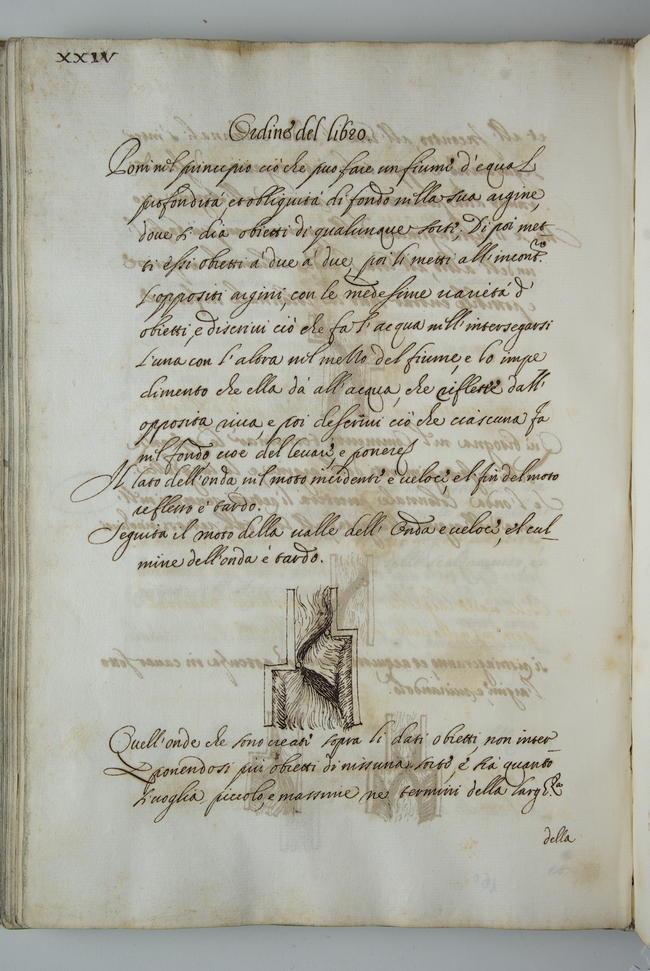 XXIV
Ordine del libro
Poni nel principio ciò che può fare un fiume d'equal
profondità et obliquità di fondo nella sua argine,
dove ti dia obietti di qualunque sorte, Di poi met-
ti essi obietti à due à due, poi li metti all'incont.ro
l'oppositi argini, con le medesime varietà d'
obietti, e discrivi ciò che fa l'acqua nell'intersegarsi
l'una con l'altra nel mezzo del fiume, e lo impe
dimento che ella dà all'acqua, che reflette dall'
opposita riva e poi descrivi ciò che ciascuna fa
nel fondo cioè del levare, e ponere
Il lato dell'onda nel moto incidente è veloce, e'l fin del moto
reflesso è tardo.
Seguita il moto della valle dell'Onda è veloce, e'l cul-
mine dell'onda è tardo.
Quell'onde che sono create sopra li dati obietti non inter-
ponendosi più obietti di nissuna sorte, e sia quanto
si voglia piccolo, e massime ne termini della largh.za
della